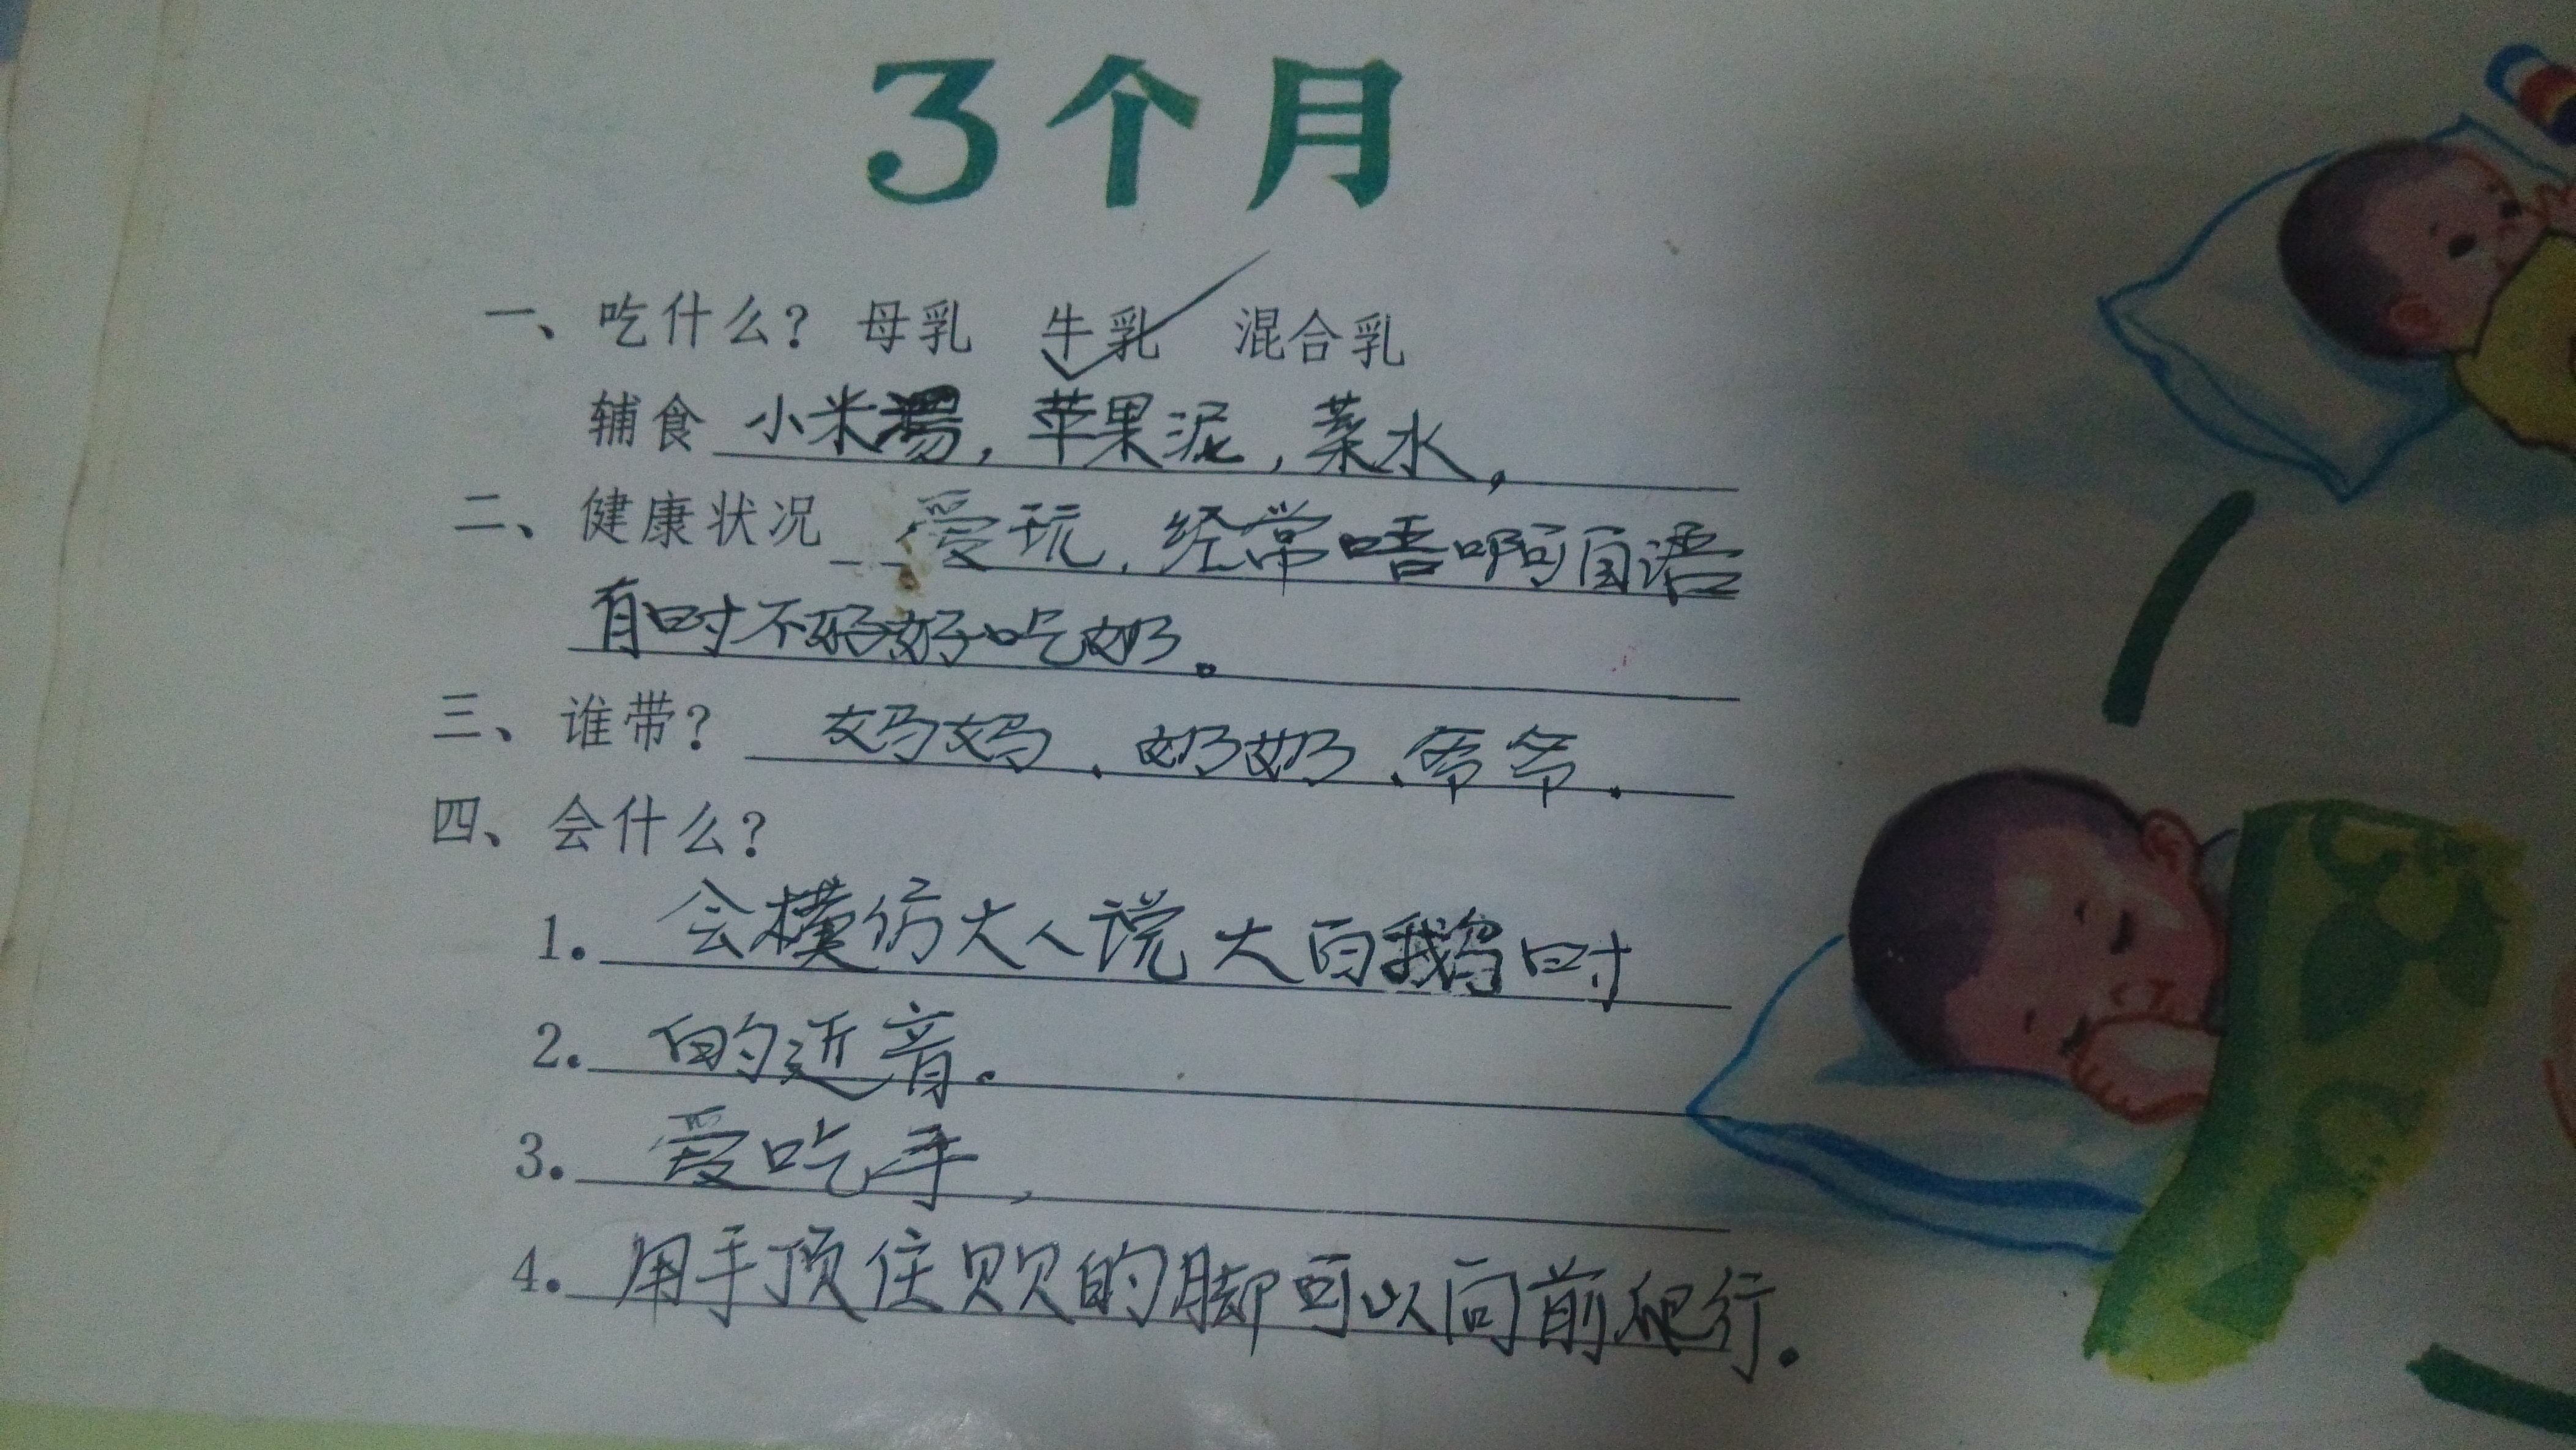 3个月
一、吃什么？ 母乳 牛乳 混合乳
辅食 小米湯，苹果泥，菜水，
二、健康状况 爱玩，经常唔啊自语
有时不好好吃奶。
三、谁带？ 妈妈、奶奶、爷爷.
四、会什么？
1. 会模仿大人说大白鹅时
2. 的近音.
3. 爱吃手，
4. 用手顶住贝贝的脚可以向前爬行.